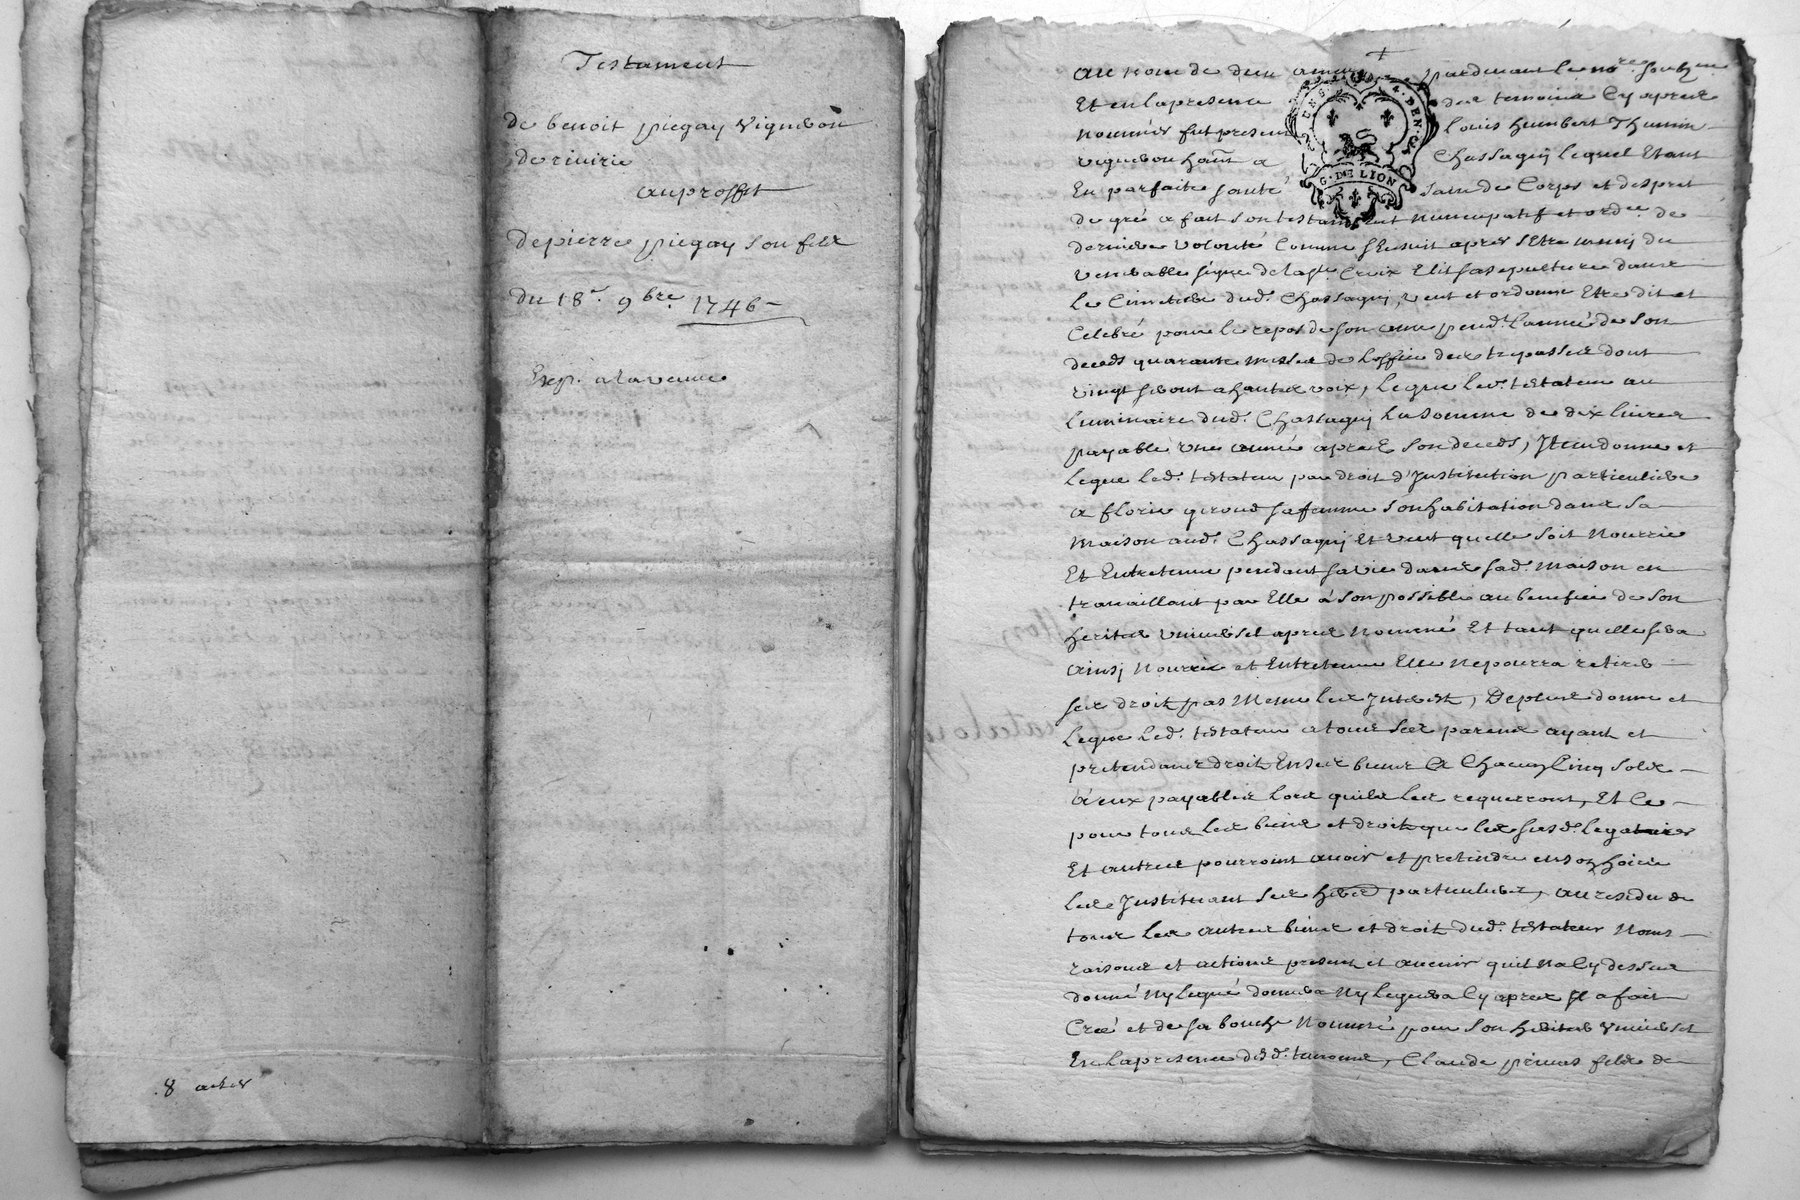 Testament
de benoit piegay vigneron
de rivirie
au proffit
de pierre piegay son fils
du 18e. 9bre 1746
Exp. a la veuve
8 actes
au nom de dieu amen pardevant le nore. soussne
Et en la presence des temoins cy apres
nommés fut present louis humbert Thumin
vigneron hant a Chassagny lequel Etant
En parfaite santé sain de Corps et despret
de gré a fait son testament nuncupatif et ordre de
derniere volonté Comme sensuit apres sEtre muny du
venerable signe de la ste Croix Elit sa sepulture dans
le Cimetiere dud. Chassagny, veut et ordonne Etre dit et
Celebré pour le repos de son ame pend. l'année de son
deceds quarante messes de l'office des trepasses dont
vingt seront a hautes voix, legue led. testateur au
luminaire dud. Chassagny la somme de dix livres
payable une année apres son deceds, Item donne et
legue led. testateur par droit d'Institution particuliere
a florie giroud sa femme son habitation dans sa
maison aud. Chassagny Et veut quelle soit nourrie
Et Entretenue pendant sa vie dans sad. maison en
travaillant par Elle à son possible au benefice de son
heritier universel apres nommé Et tant quelle sera
ainsj nourrie et Entretenue Elle ne pourra retirer
ses droits pas mesme les Interest, De plus donne et
legue led. testateur a tous ses parens ayant et
pretendans droit En ses biens a Chacun Cinq sols
à eux payables lors quils les requerront, Et Ce
pour tous les biens et droits que les susd. legataires
Et autres pourroint avoir et pretendre en son hoirie
les Instituant ses herers particuliers, au residu de
tous les autres biens et droits dud. testateur noms
raisons et actions present et avenir quil na Cy dessus
donné ny legué donnera ny leguera Cy apres Il a fait
Créé et de sa bouche nommé pour son heritier universel
En la presence desd. temoins, Claude primas fils de